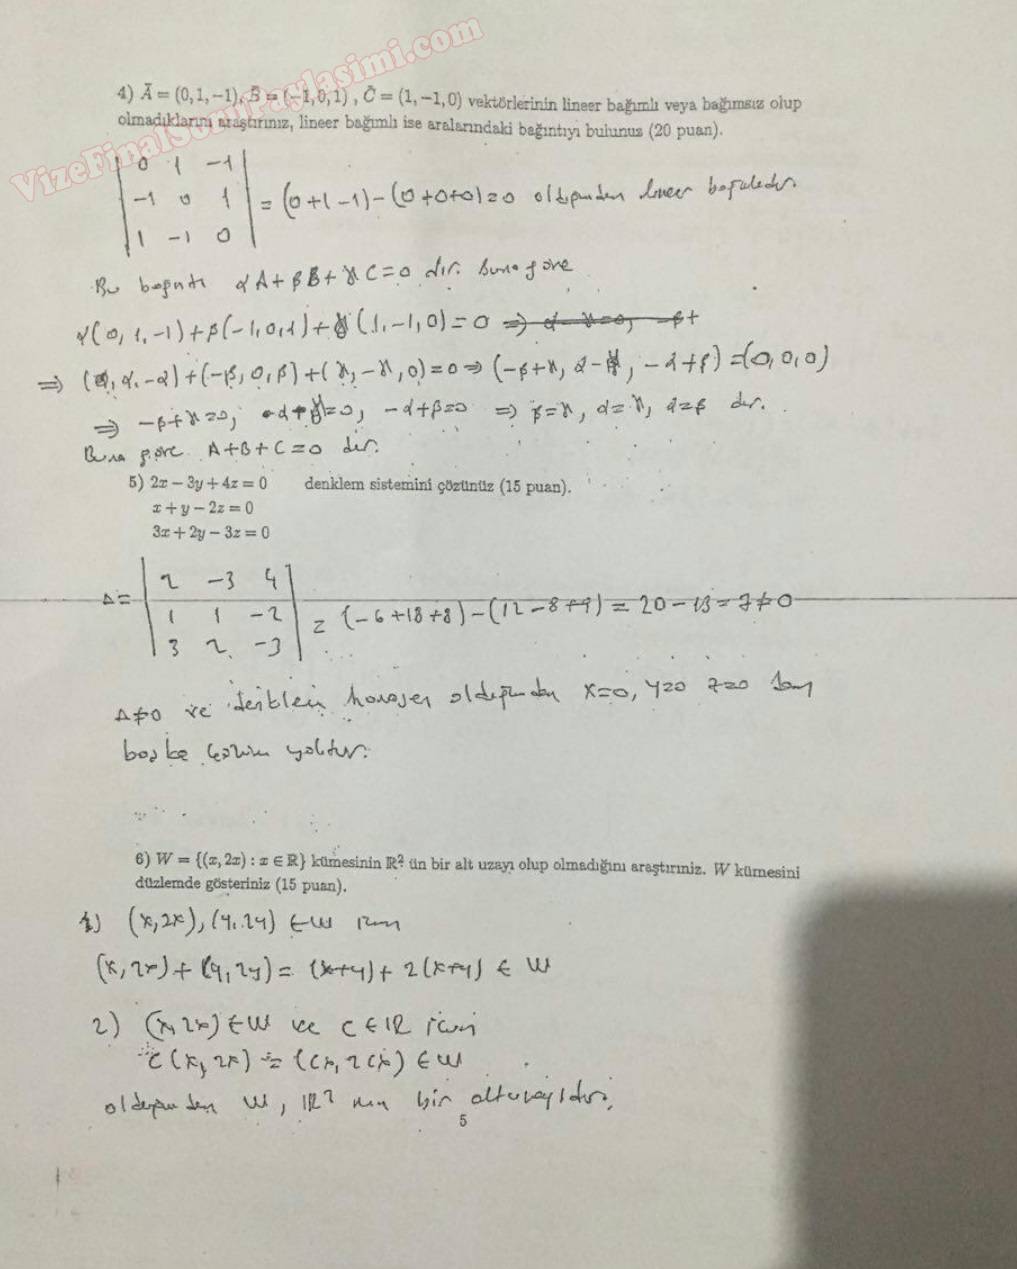 VizeFinalSoruPaylasimi.com
4) Ā = (0,1,−1), B̄ = (−1,0,1) , C̄ = (1,−1,0) vektörlerinin lineer bağımlı veya bağımsız olup
olmadıklarını araştırınız, lineer bağımlı ise aralarındaki bağıntıyı bulunuz (20 puan).
0 1 −1
−1 0 1 = (0+1−1)−(0+0+0)=0 olduğundan lineer bağımlıdır.
1 −1 0
Bu bağıntı αA+βB+γC=0 dır. Buna göre
α(0,1,−1)+β(−1,0,1)+γ(1,−1,0)=0 ⇒
⇒ (0,α,−α)+(−β,0,β)+(γ,−γ,0)=0 ⇒ (−β+γ, α−γ, −α+β)=(0,0,0)
⇒ −β+γ=0, −α+γ=0, −α+β=0 ⇒ β=γ, α=γ, α=β dır.
Buna göre A+B+C=0 dır.
5) 2x − 3y + 4z = 0 denklem sistemini çözünüz (15 puan).
x + y − 2z = 0
3x + 2y − 3z = 0
2 −3 4
Δ= 1 1 −2 = (−6+18+8)−(12−8+9) = 20−13=7≠0
3 2 −3
Δ≠0 ve denklem homojen olduğundan x=0, y=0 z=0 dan
başka çözüm yoktur.
6) W = {(x, 2x) : x ∈ ℝ} kümesinin ℝ² ün bir alt uzayı olup olmadığını araştırınız. W kümesini
düzlemde gösteriniz (15 puan).
1) (x,2x),(y,2y) ∈ W için
(x,2x)+(y,2y)=(x+y)+2(x+y) ∈ W
2) (x,2x)∈W ve c∈ℝ için
c(x,2x) = (cx,2cx) ∈ W
olduğundan W, ℝ² nin bir altuzayıdır.
5